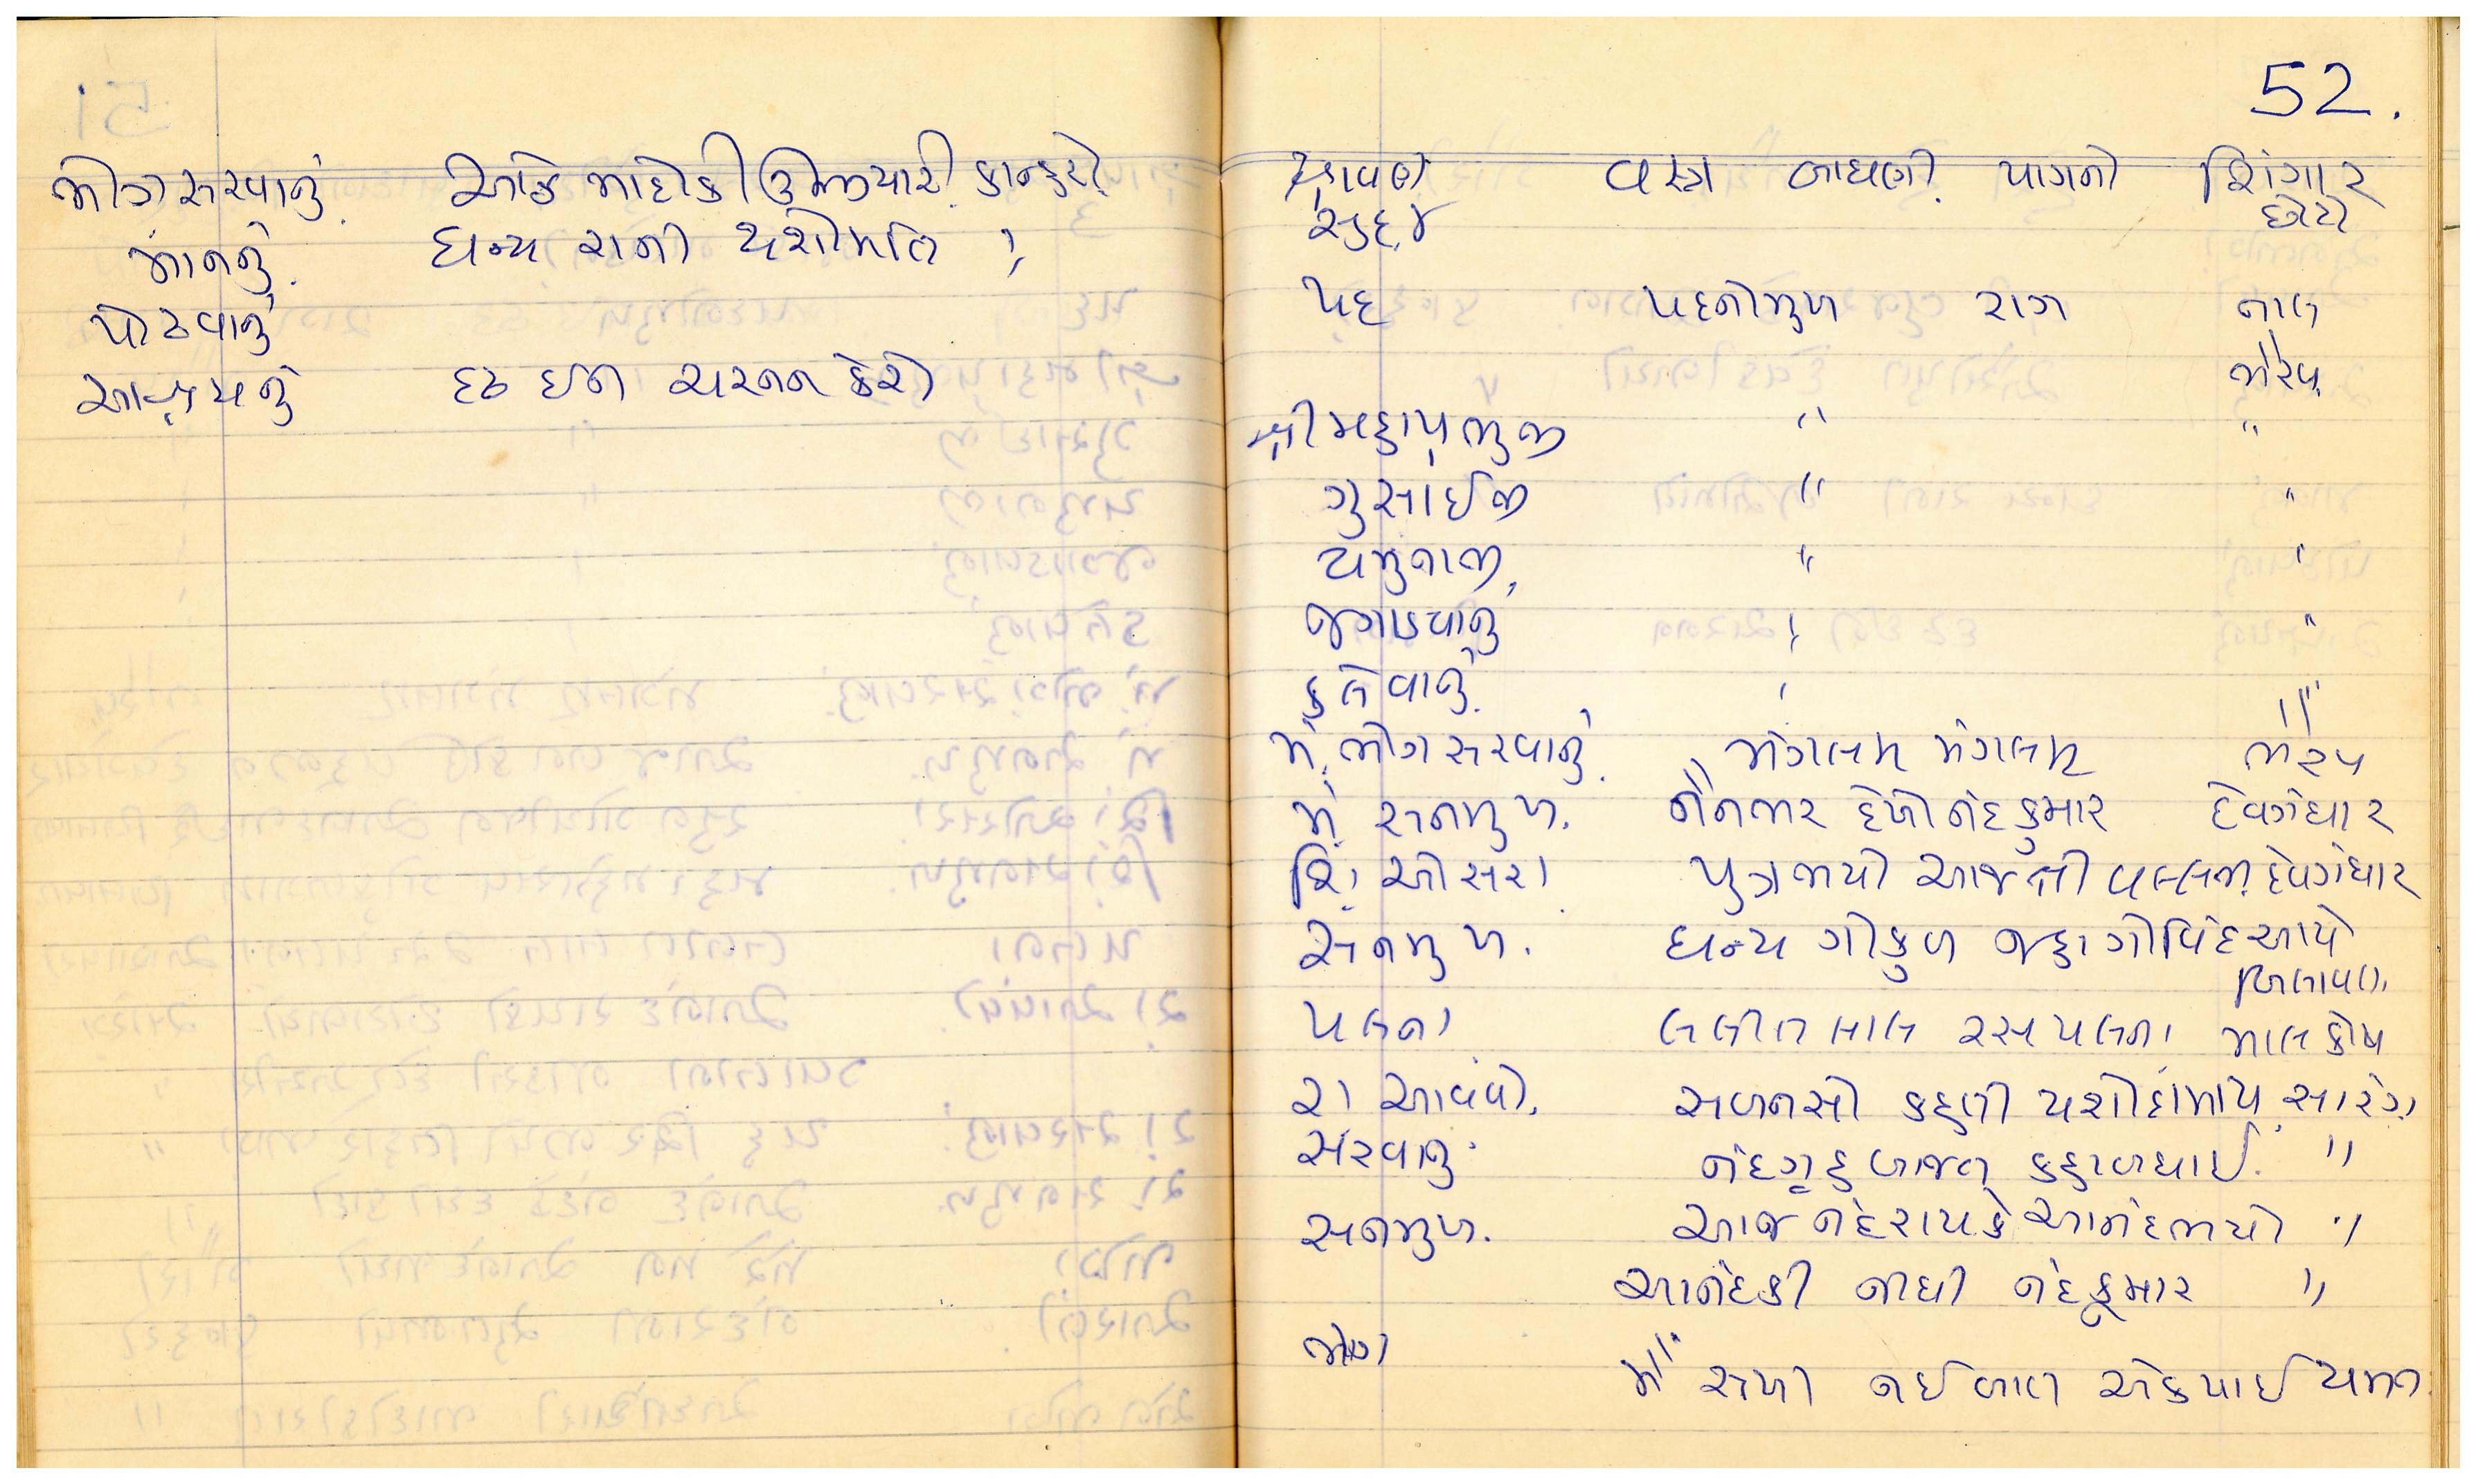 ભોગ સરવાનું. આઠે ભાદોકી ઉજીયારી. કાન્હરો.
માનનું. ધન્ય રાની યશોમતિ "
પોઢવાનું
આશ્રયનું દૃઢ ઈન ચરનન કેરો
52.
શ્રાવણ વસ્ત્ર બાધણી પાગનો શિંગાર
સુદ ૪ છોટો
પદ પદનીમુખ રાગ તાલ
ભૈરવ
શ્રીમહાપ્રભુજી " "
ગુસાઈજી " "
યમુનાજી " "
જગાડવાનું " "
કલેવાનું " "
મં. ભોગ સરવાનું. મંગલમ મંગલમ ભૈરવ
મં સનમુખ. નૈનભર દેખો નંદકુમાર દેવગંધાર
શિં ઓસરા પુત્રભયો આજ શ્રી વલ્લભ દેવગંધાર
સનમુખ. ધન્ય ગોકુળ જહા ગોવિંદ આયે
બિલાવલ
પલના લલીત લાલ રસ પલના માલકોષ
રા આવવો. સબનસો કહતી યશોદામાય સારંગ
સરવાનું નંદગૃહ બાજત કહાબધાઈ. "
સનમુખ. આજ નંદરાયકે આનંદભયો "
આનંદકી નીધી નંદકુમાર "
ભોગ મૈં સખી નઈ બાત એક પાઈ